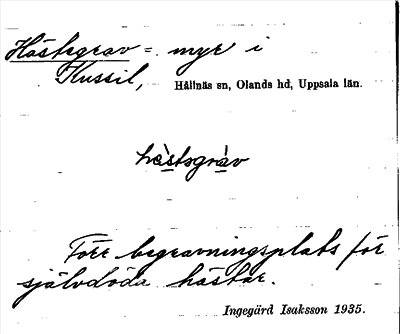 Hästsgrav = myr i
Kussil, Hållnäs sn, Olands hd, Uppsala län.
hèstsgràv
Förr begravningsplats för
självdöda hästar.
Ingegärd Isaksson 1935.